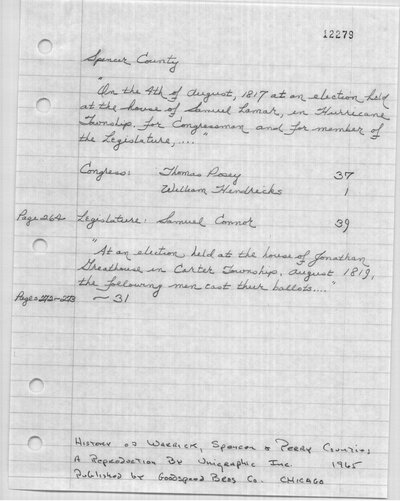 12279
Spencer County
"On the 4th of August, 1817 at an election held
at the house of Samuel Lamar, in Hurricane
Township, for Congressman and for member of
the Legislature,...."
Congress: Thomas Posey 37
William Hendricks 1
Page 264 Legislature: Samuel Connor 39
"At an election held at the house of Jonathan
Greathouse in Carter Township, August 1819,
the following men cast their ballots...."
Pages 272-273 ~ 31
History of Warrick, Spencer & Perry Counties
A Reproduction By Unigraphic Inc. 1965
Published by Goodspeed Bros Co. CHICAGO